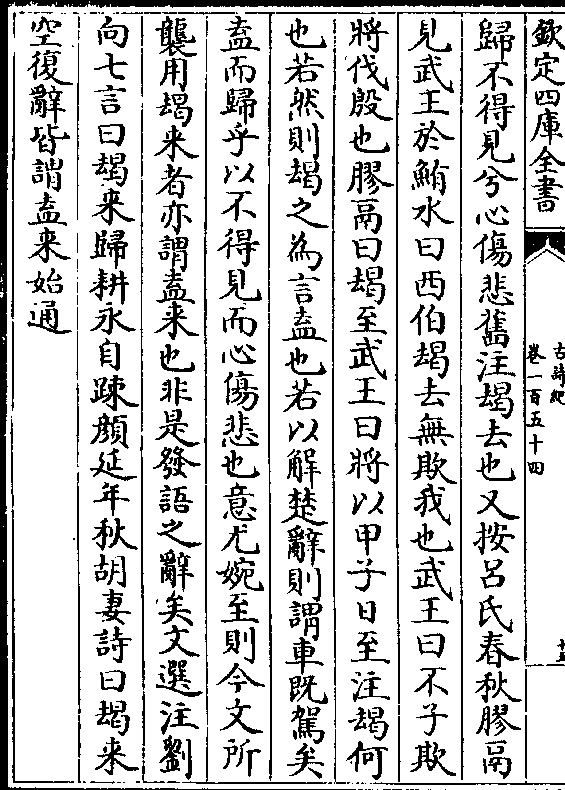 欽定四庫全書
古詩紀
卷一百五十四
歸不得見兮心傷悲舊注朅去也又按呂氏春秋膠鬲
見武王於鮪水曰西伯朅去無欺我也武王曰不子欺
將伐殷也膠鬲曰朅至武王曰將以甲子日至注朅何
也若然則朅之為言盍也若以解楚辭則謂車既駕矣
盍而歸乎以不得見而心傷悲也意尤婉至則今文所
襲用朅来者亦謂盍来也非是發語之辭矣文選注劉
向七言曰朅来歸耕永自踈顔延年秋胡妻詩曰朅来
空復辭皆謂盍来始通